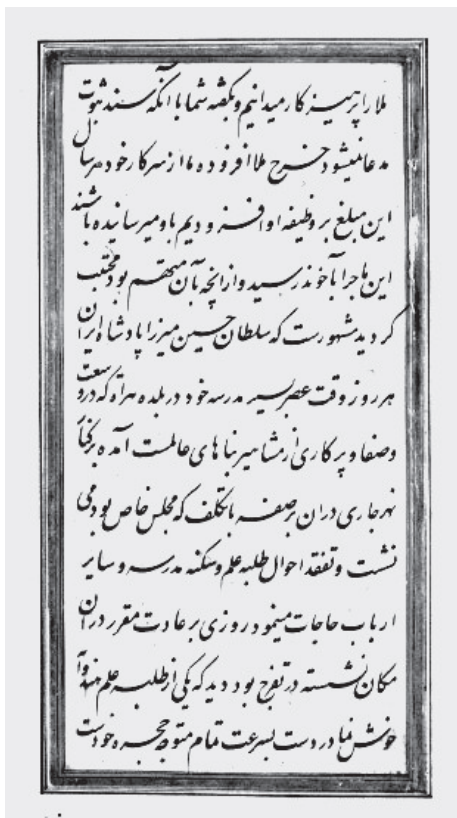 ملا را پرهیزکار میدانیم و بگفته شما با آنکه سند ثبوت
مدعا نمیشود خرج ملا افزوده ما از سرکار خود هر سال
این مبلغ بر وظیفه او افزودیم باو میرسانیده باشند
این ماجرا بآخوند رسید و از آنچه بآن متهم بود مجتنب
گردید مشهورست که سلطان حسین میرزا پادشاه ایران
هر روز وقت عصر بسیر مدرسه خود در بلده هراة که در وسعت
وصفا و پرکاری از مشاهیر بناهای عالمست آمده برکنار
نهر جاری دران بر صفه با تکلف که مجلس خاص بود می
نشست و تفقد احوال طلبه علم و سکنه مدرسه و سایر
ارباب حاجات مینمود روزی بر عادت مقرر دران
مکان نشسته در تفرج بود دید که یکی از طلبه علم
خوش نما در دست بسرعت تمام متوجه حجره خودست